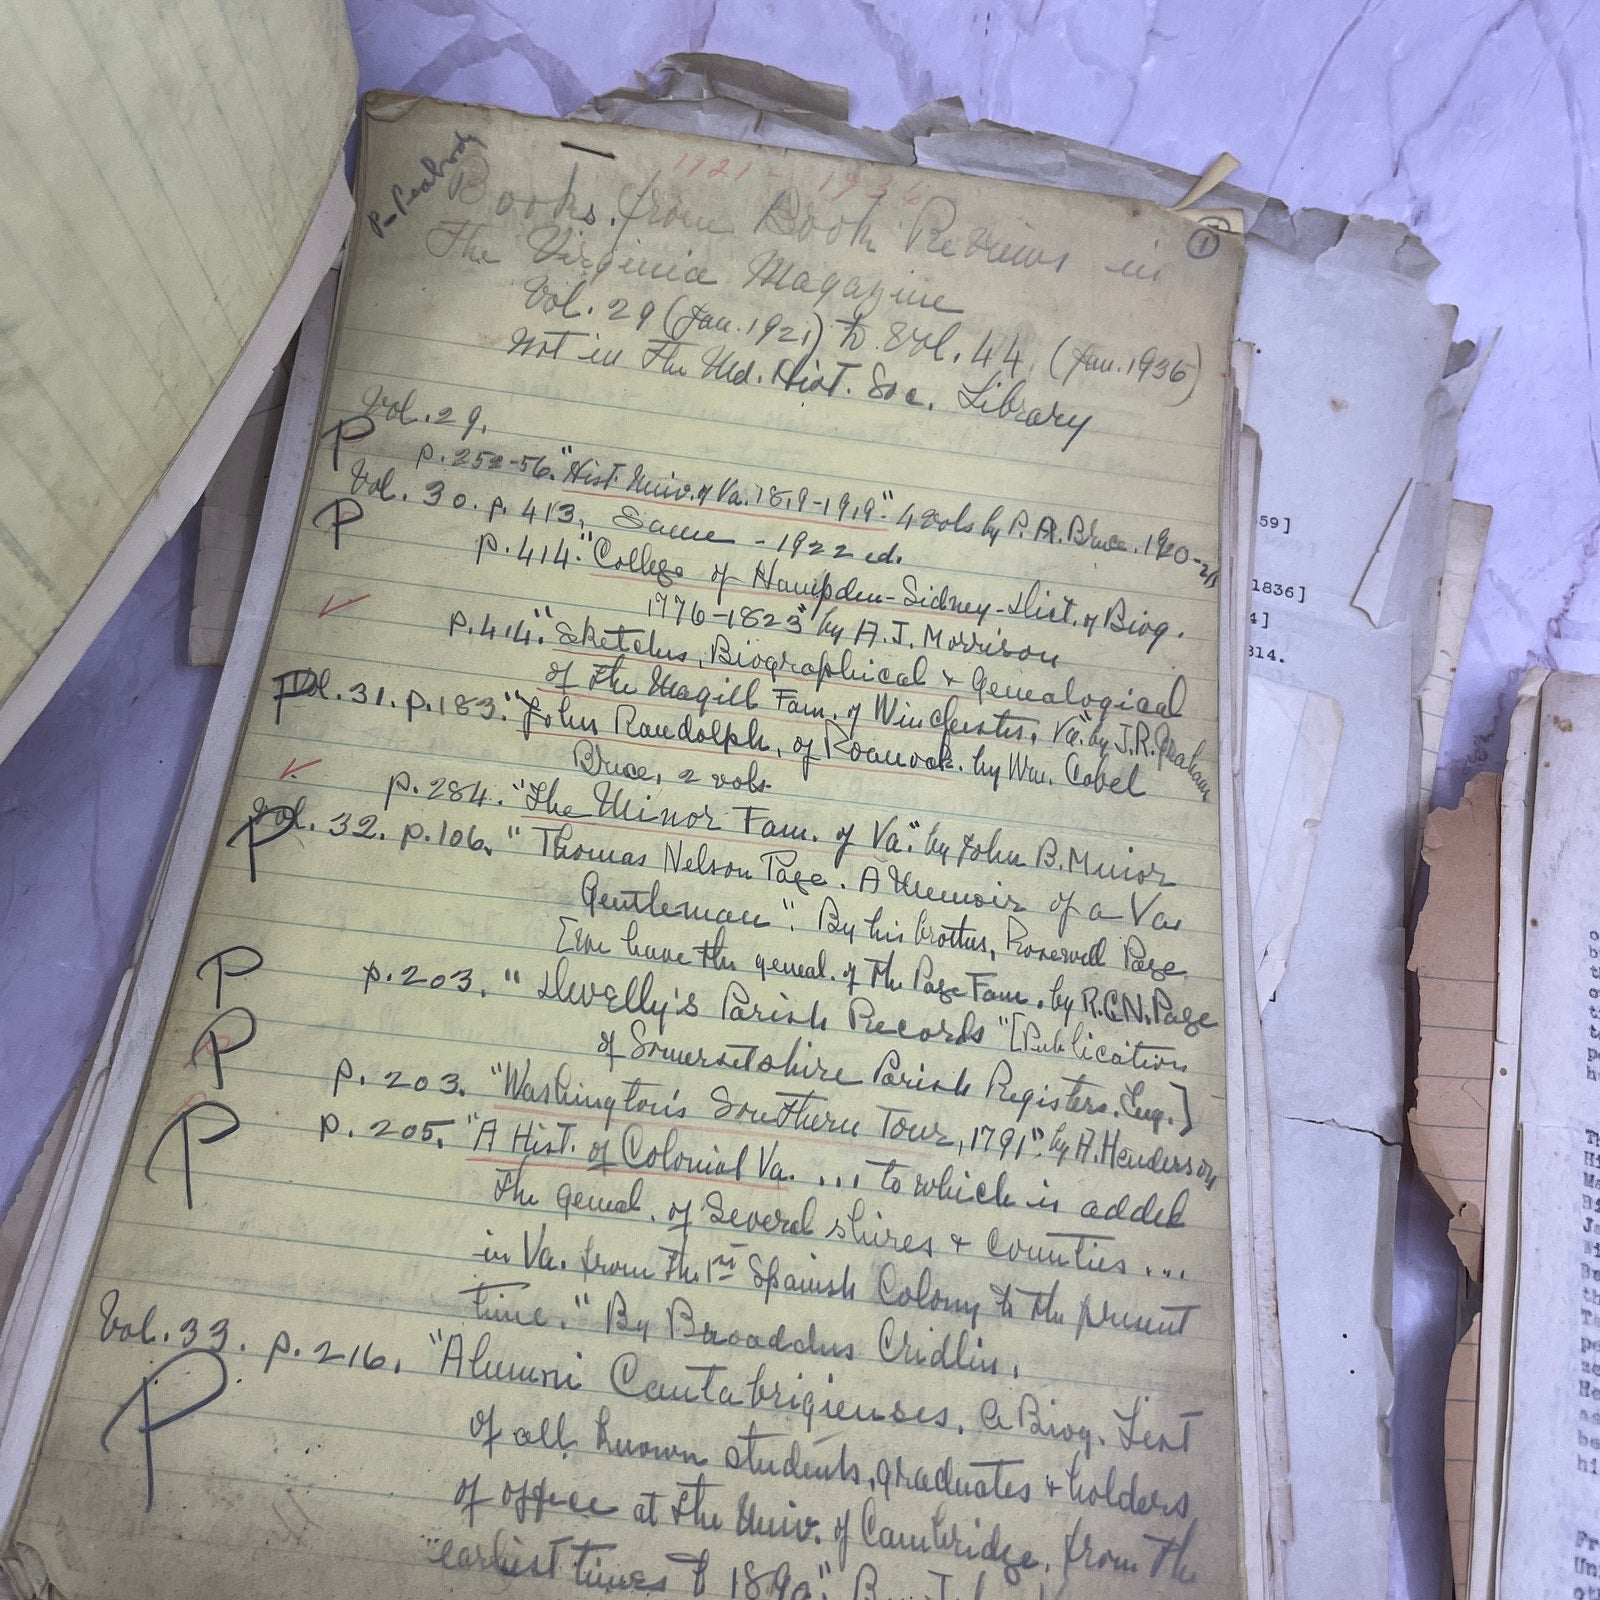 1921 - 1936
P- Peabody
①
Books from Book Reviews in
The Virginia Magazine
Vol. 29 (Jan. 1921) to Vol. 44. (Jan. 1936)
not in the Md. Hist. Soc. Library
Vol. 29.
P p. 252-56. "Hist. Univ. of Va. 1819-1919". 4 vols by P. A. Bruce. 1920-21
Vol. 30. p. 413. Same - 1922 ed.
P p. 414. "College of Hampden-Sidney - Dict. of Biog.
1776-1823" by A. J. Morrison
✓ p. 414. "Sketches, Biographical & Genealogical
of the Magill Fam. of Winchester, Va". by J. R. Graham
P Vol. 31. p. 183. "John Randolph, of Roanoak. by Wm. Cabel
Bruce, 2 vols.
✓ p. 284. "The Minor Fam. of Va". by John B. Minor
P Vol. 32. p. 106. "Thomas Nelson Page. A Memoir of a Va.
Gentleman". By his brother, Rosewell Page.
[we have the geneal. of the Page Fam. by R. C. N. Page
P p. 203. "Dwelly's Parish Records" [Publication
of Somersetshire Parish Registers. Eng.]
P p. 203. "Washington's Southern Tour, 1791". by A. Henderson
P p. 205. "A Hist. of Colonial Va. ... to which is added
the geneal. of several shires & counties ...
in Va. from the 1st Spanish Colony to the present
time." By Broaddus Cridlin.
Vol. 33. p. 216. "Alumni Cantabrigienses. A Biog. List
P of all known students, graduates & holders
of office at the Univ. of Cambridge, from the
earliest times to 1890". By
59]
1836]
4]
814.
]